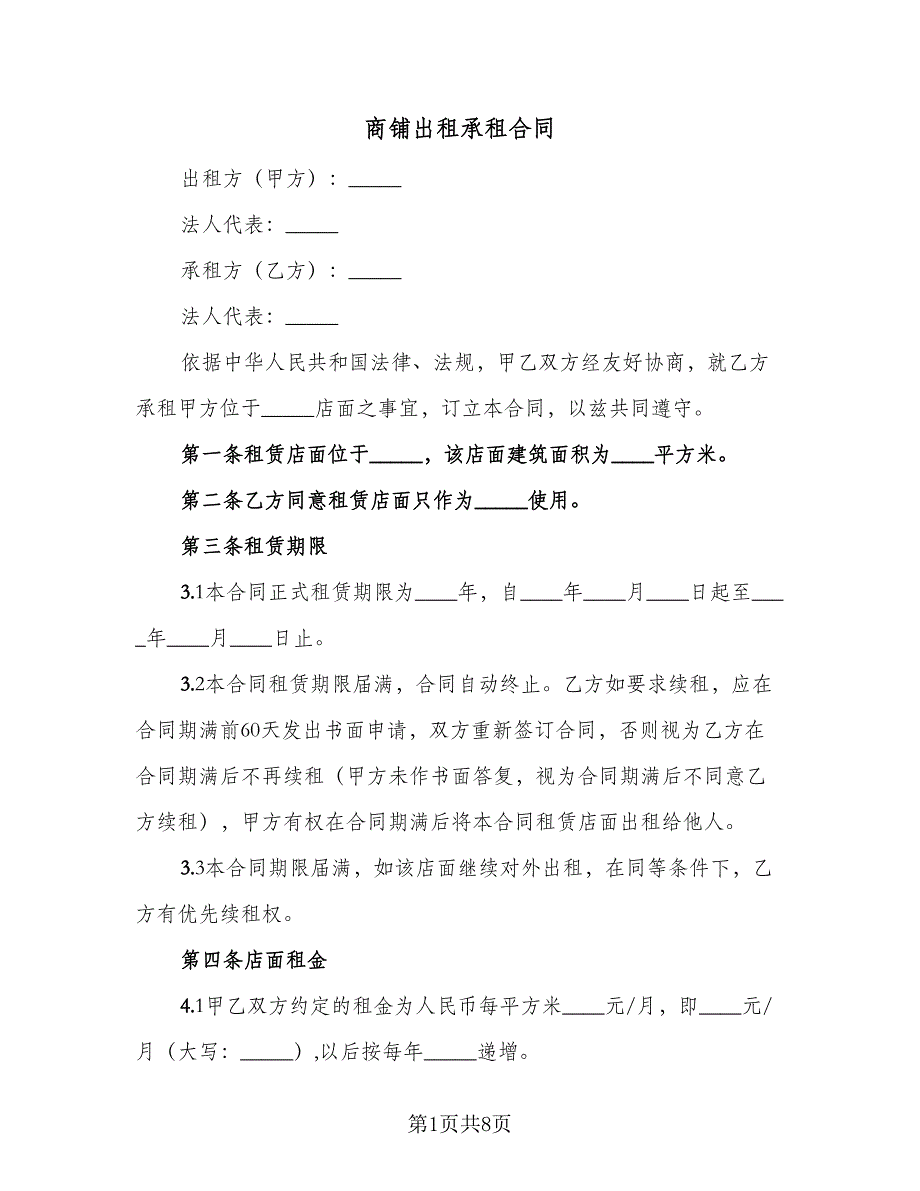 商铺出租承租合同
出租方（甲方）：_____
法人代表：_____
承租方（乙方）：_____
法人代表：_____
依据中华人民共和国法律、法规，甲乙双方经友好协商，就乙方
承租甲方位于_____店面之事宜，订立本合同，以兹共同遵守。
第一条租赁店面位于_____，该店面建筑面积为____平方米。
第二条乙方同意租赁店面只作为_____使用。
第三条租赁期限
3.1本合同正式租赁期限为____年，自____年____月____日起至___
_年____月____日止。
3.2本合同租赁期限届满，合同自动终止。乙方如要求续租，应在
合同期满前60天发出书面申请，双方重新签订合同，否则视为乙方在
合同期满后不再续租（甲方未作书面答复，视为合同期满后不同意乙
方续租），甲方有权在合同期满后将本合同租赁店面出租给他人。
3.3本合同期限届满，如该店面继续对外出租，在同等条件下，乙
方有优先续租权。
第四条店面租金
4.1甲乙双方约定的租金为人民币每平方米____元/月，即____元/
月（大写：_____）,以后按每年_____递增。
第1页共8页